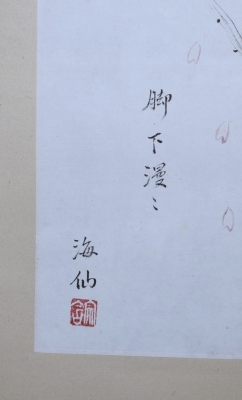 脚下漫〻
海仙